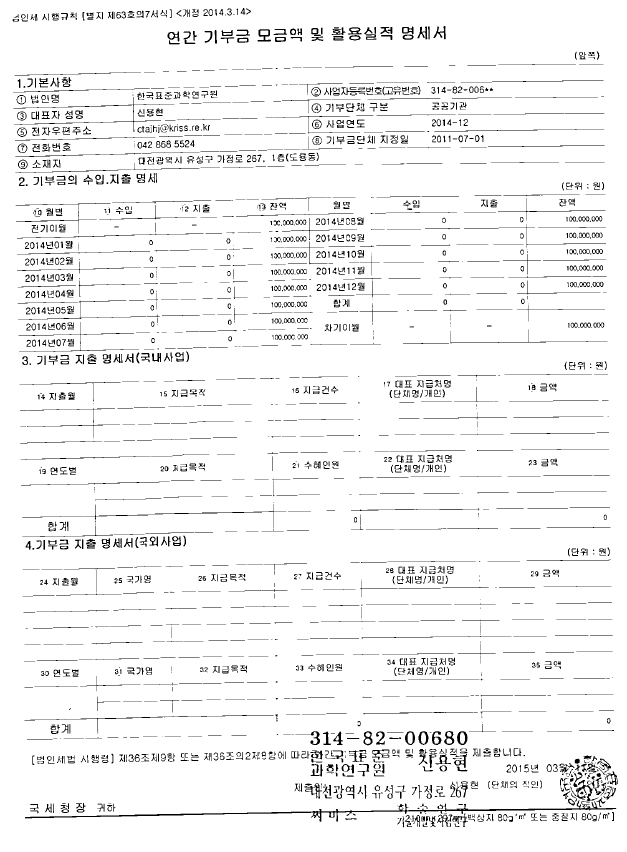 법인세 시행규칙 [별지 제63호의7서식] <개정 2014.3.14>
연간 기부금 모금액 및 활용실적 명세서
(앞쪽)
1.기본사항
① 법인명 한국표준과학연구원 ② 사업자등록번호(고유번호) 314-82-006**
③ 대표자 성명 신용현 ④ 기부단체 구분 공공기관
⑤ 전자우편주소 ctajhj@kriss.re.kr ⑥ 사업연도 2014-12
⑦ 전화번호 042 868 5524 ⑧ 기부금단체 지정일 2011-07-01
⑨ 소재지 대전광역시 유성구 가정로 267, 1층(도룡동)
2. 기부금의 수입.지출 명세
(단위 : 원)
⑩ 월별 11 수입 12 지출 13 잔액 월별 수입 지출 잔액
전기이월 – – 100,000,000 2014년08월 0 0 100,000,000
2014년01월 0 0 100,000,000 2014년09월 0 0 100,000,000
2014년02월 0 0 100,000,000 2014년10월 0 0 100,000,000
2014년03월 0 0 100,000,000 2014년11월 0 0 100,000,000
2014년04월 0 0 100,000,000 2014년12월 0 0 100,000,000
2014년05월 0 0 100,000,000 합계 0 0
2014년06월 0 0 100,000,000 차기이월 – – 100,000,000
2014년07월 0 0 100,000,000
3. 기부금 지출 명세서(국내사업)
(단위 : 원)
14 지출월 15 지급목적 16 지급건수 17 대표 지급처명 (단체명/개인) 18 금액
19 연도별 20 지급목적 21 수혜인원 22 대표 지급처명 (단체명/개인) 23 금액
합계 0 0
4.기부금 지출 명세서(국외사업)
(단위 : 원)
24 지출월 25 국가명 26 지급목적 27 지급건수 28 대표 지급처명 (단체명/개인) 29 금액
30 연도별 31 국가명 32 지급목적 33 수혜인원 34 대표 지급처명 (단체명/개인) 35 금액
합계 0 0
314-82-00680
[법인세법 시행령] 제36조제9항 또는 제36조의2제8항에 따라 모금액 및 활용실적을 제출합니다.
과학연구원 신용현
2015년 03월
대전광역시 유성구 가정로 267
신용현 (단체의 직인)
국세청장 귀하
써비스
백상지 80g/㎡ 또는 중질지 80g/㎡]